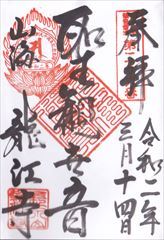 奉拝
令和二年
三月十四日
聖観世音
龍江寺